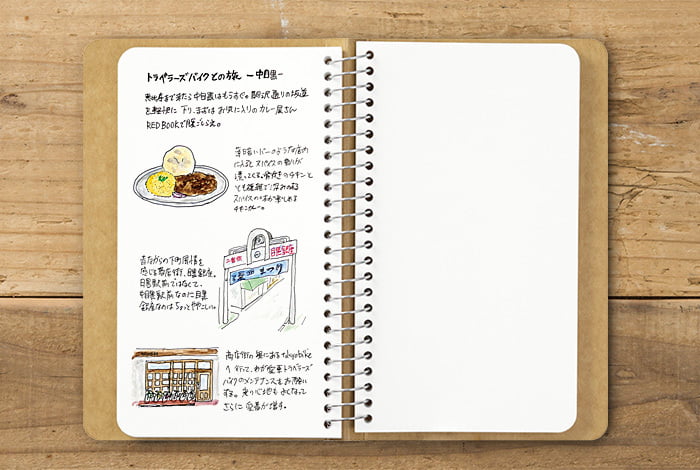 トラベラーズバイクとの旅 ー中目黒ー
恵比寿まで来たら中目黒はもうすぐ。駒沢通りの坂道
を軽快に下り、まずはお気に入りのカレー屋さん
RED BOOKで腹ごしらえ。
バーのような店内
に入ると スパイスの香りが
漂ってくる。骨付きのチキンと
とても複雑で深みのある
スパイスの味が楽しめる
チキンカレー。
昔ながらの下町風情を
感じる商店街、目黒銀座。
目黒駅前ではなくて、
中目黒駅前なのに目黒
銀座なのはちょっとややこしい。
二番街
目黒銀座
まつり
商店街の奥にあるtokyobike
へ行って、わが愛車トラベラーズ
バイクのメンテナンスもお願い
する。乗り心地もよくなって
さらに愛着が増す。